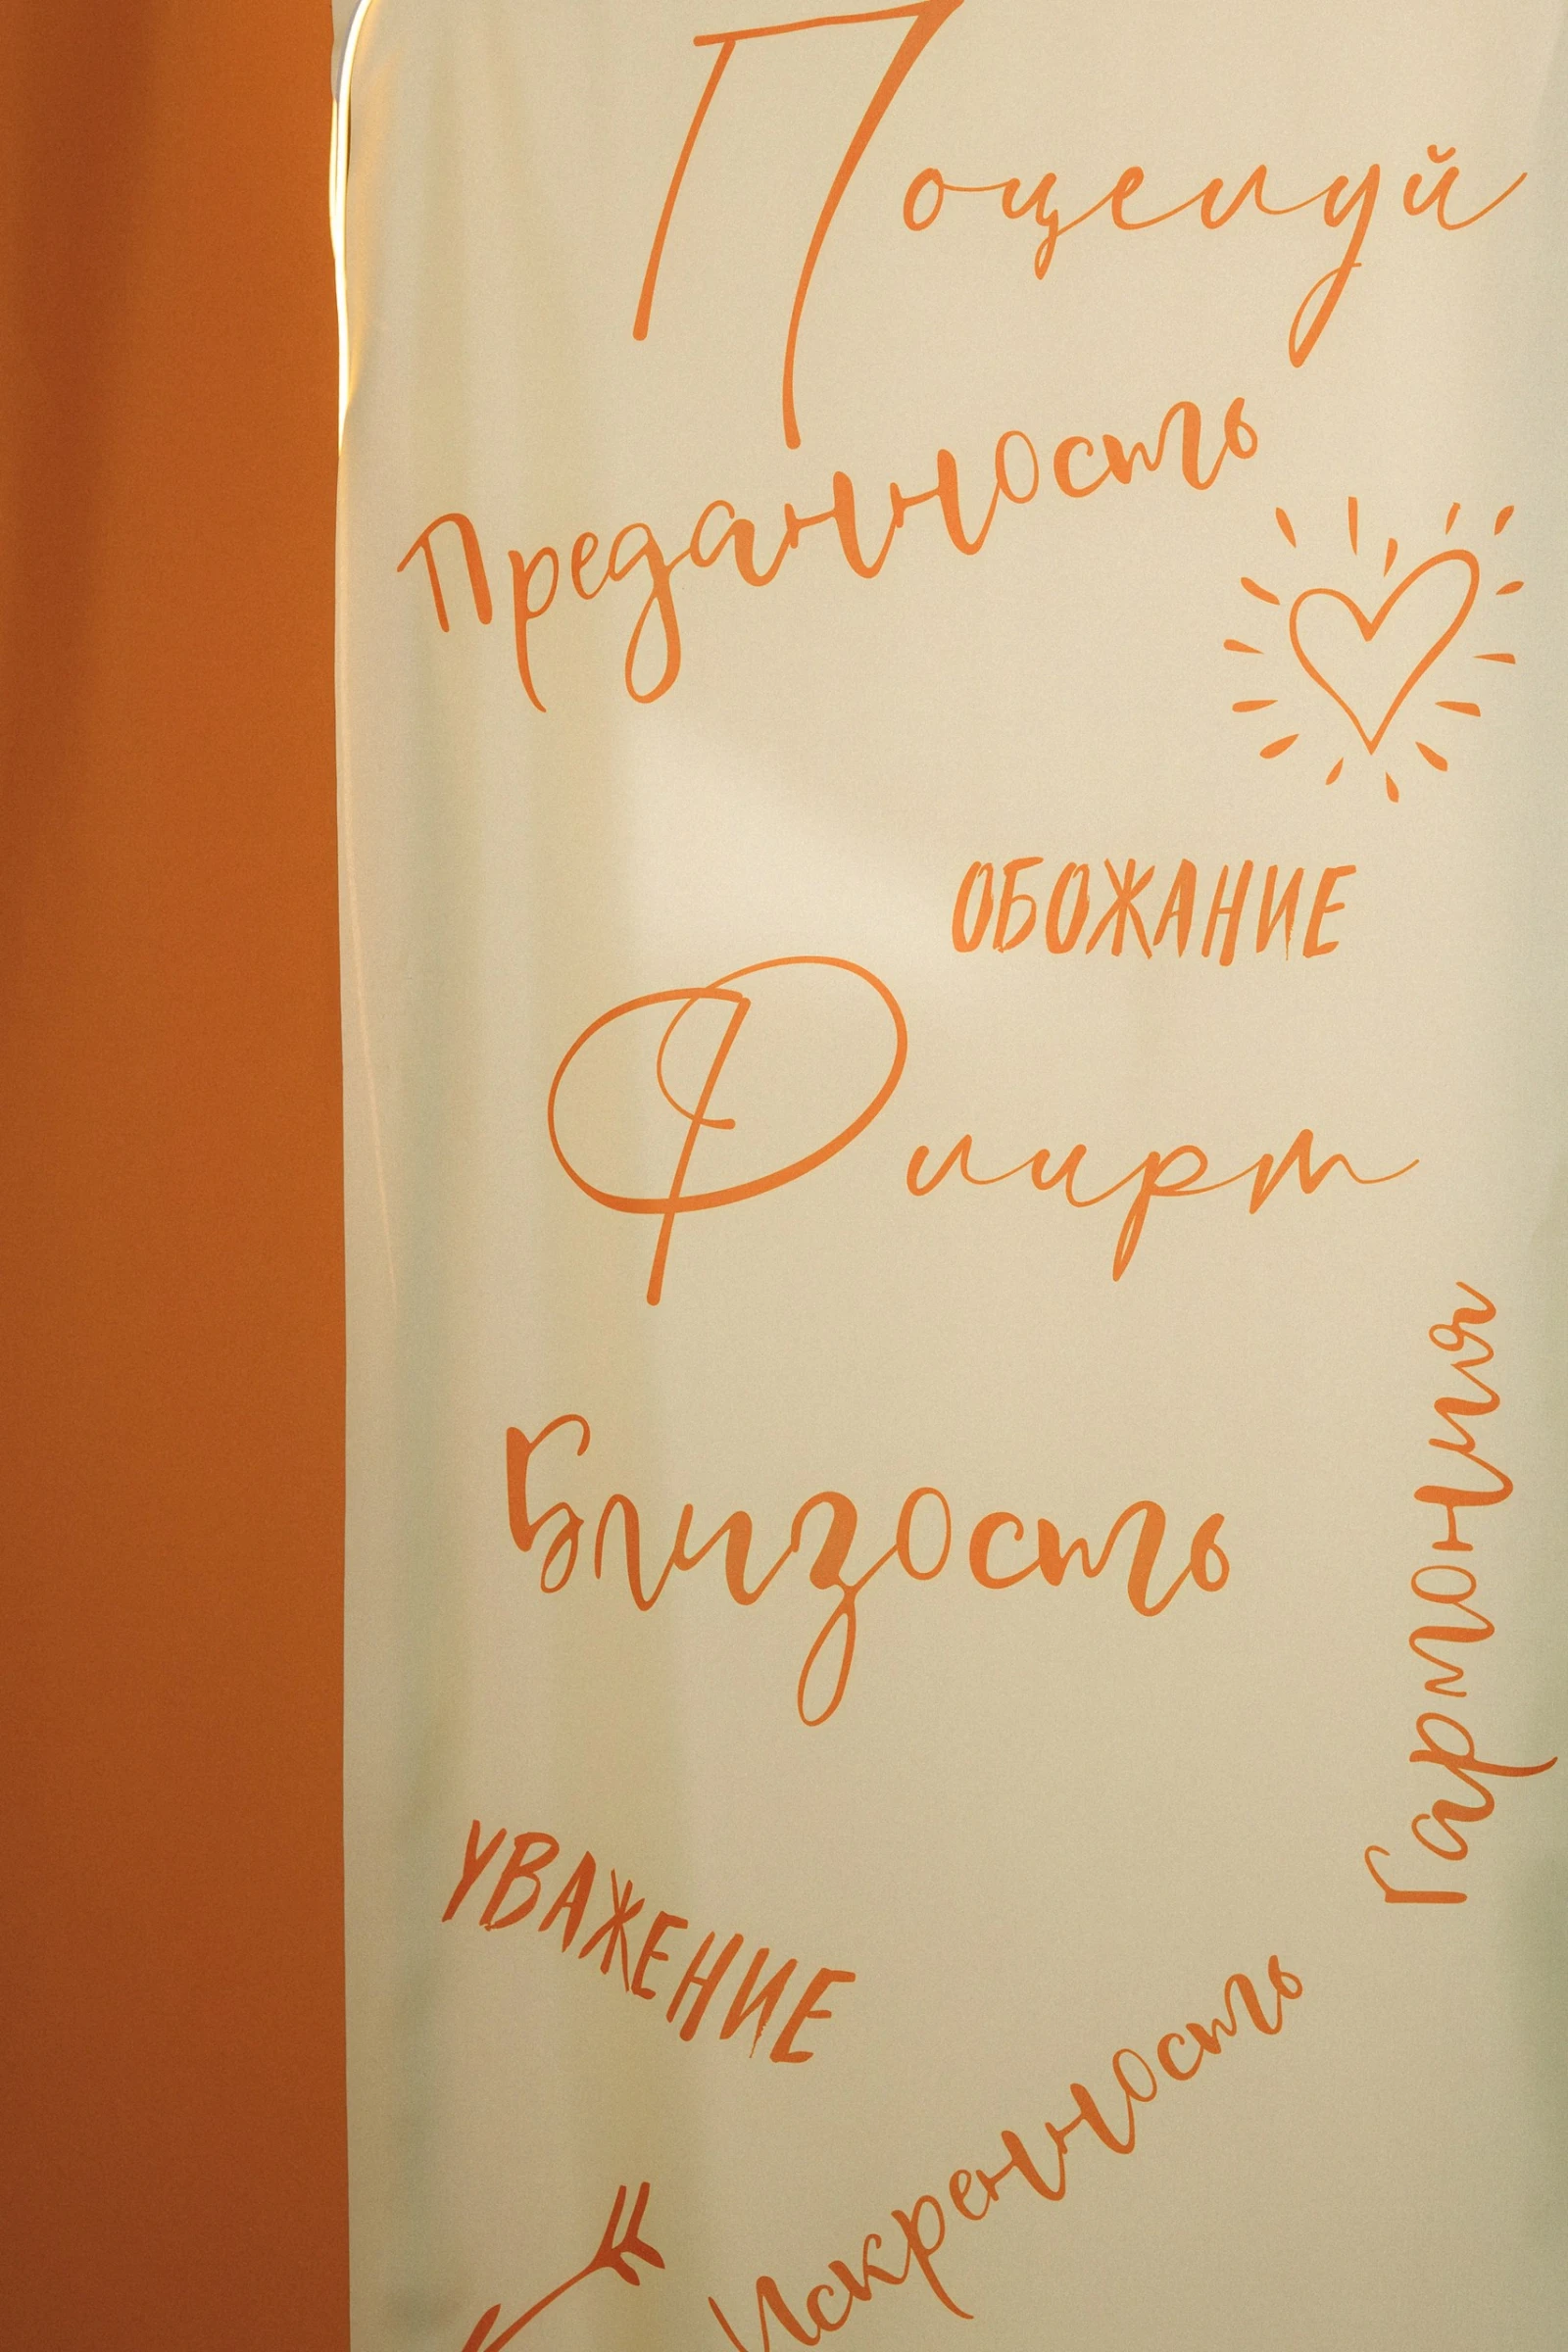 Поцелуй
Преданность
ОБОЖАНИЕ
Флирт
Близость
Гармония
УВАЖЕНИЕ
Искренность